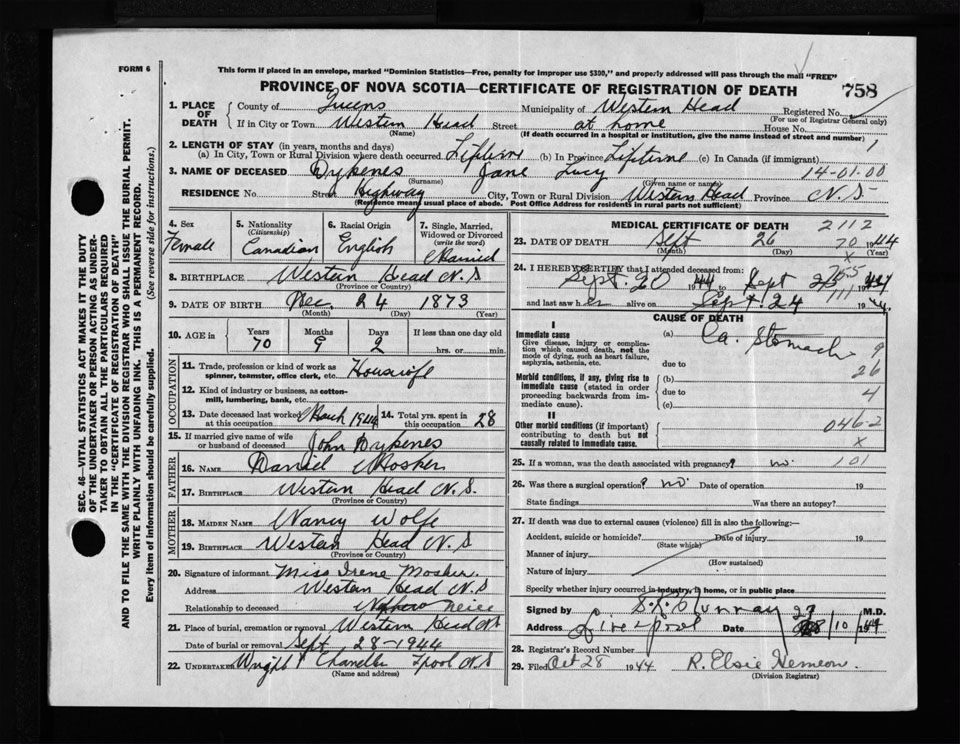 FORM 6
This form if placed in an envelope, marked "Dominion Statistics—Free, penalty for improper use $300," and properly addressed will pass through the mail "FREE"
PROVINCE OF NOVA SCOTIA—CERTIFICATE OF REGISTRATION OF DEATH 758
1. PLACE OF DEATH
County of Queens Municipality of Western Head Registered No.
(For use of Registrar General only)
If in City or Town Western Head Street at home House No.
(Name) (If death occurred in a hospital or institution, give the name instead of street and number)
2. LENGTH OF STAY (in years, months and days) 1
(a) In City, Town or Rural Division where death occurred Lifetime (b) In Province Lifetime (c) In Canada (if immigrant)
3. NAME OF DECEASED Dykenes Jane Lucy 14-01-00
(Surname) (Given name or names)
RESIDENCE No. Street Highway City, Town or Rural Division Western Head Province N.S
(Residence means usual place of abode. Post Office Address for residents in rural parts not sufficient)
4. Sex Female
5. Nationality (Citizenship) Canadian
6. Racial Origin English
7. Single, Married, Widowed or Divorced (write the word) Married
8. BIRTHPLACE Western Head N.S
(Province or Country)
9. DATE OF BIRTH Dec 24 1873
(Month) (Day) (Year)
10. AGE in Years 70 Months 9 Days 2 If less than one day old
hrs. or min.
OCCUPATION
11. Trade, profession or kind of work as spinner, teamster, office clerk, etc. Housewife
12. Kind of industry or business, as cotton-mill, lumbering, bank, etc.
13. Date deceased last worked at this occupation March 1944 14. Total yrs. spent in this occupation 28
15. If married give name of wife or husband of deceased John Dykenes
FATHER
16. NAME Daniel Mosher
17. BIRTHPLACE Western Head N.S.
(Province or Country)
MOTHER
18. MAIDEN NAME Nancy Wolfe
19. BIRTHPLACE Western Head N.S
(Province or Country)
20. Signature of informant Miss Irene Mosher
Address Western Head N.S
Relationship to deceased Neice
21. Place of burial, cremation or removal Western Head NS
Date of burial or removal Sept 28-1944
22. UNDERTAKER Wright Chandler Lpool N.S
(Name and address)
MEDICAL CERTIFICATE OF DEATH 2112
23. DATE OF DEATH Sept 26 70 1944
(Month) (Day) (Year)
X
24. I HEREBY CERTIFY that I attended deceased from: 765
Sept. 20 1944 to Sept 1944
111
and last saw her alive on Sept. 24 1944.
CAUSE OF DEATH
I
Immediate cause
Give disease, injury or complication which caused death, not the mode of dying, such as heart failure, asphyxia, asthenia, etc.
(a) Ca. Stomach 9
due to 26
Morbid conditions, if any, giving rise to immediate cause (stated in order proceeding backwards from immediate cause).
(b)
due to 4
(c)
II
Other morbid conditions (if important) contributing to death but not causally related to immediate cause.
046-2
X
25. If a woman, was the death associated with pregnancy? no. 101
26. Was there a surgical operation? no. Date of operation 19
State findings Was there an autopsy?
27. If death was due to external causes (violence) fill in also the following:—
Accident, suicide or homicide? Date of injury 19
(State which)
Manner of injury
(How sustained)
Nature of injury
Specify whether injury occurred in industry, in home, or in public place
Signed by M.D.
Address Liverpool Date 10 1944
28. Registrar's Record Number
29. Filed Oct 28 1944 R. Elsie Hemeon.
(Division Registrar)
SEC. 46—VITAL STATISTICS ACT MAKES IT THE DUTY
OF THE UNDERTAKER OR PERSON ACTING AS UNDER-
TAKER TO OBTAIN ALL THE PARTICULARS REQUIRED
IN THE "CERTIFICATE OF REGISTRATION OF DEATH"
AND TO FILE THE SAME WITH THE DIVISION REGISTRAR WHO SHALL ISSUE THE BURIAL PERMIT.
WRITE PLAINLY WITH UNFADING INK. THIS IS A PERMANENT RECORD.
Every item of information should be carefully supplied. (See reverse side for instructions.)